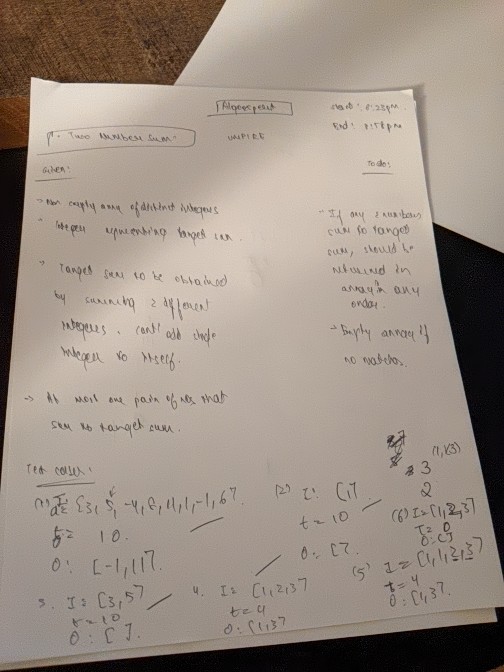 Algoexpert
Start: 8:23pm
End: 8:58pm
P1- Two Number Sum.
UMPIRE
Given:
To do:
→ Non empty array of distinct integers
→ Integer representing target sum.
→ Target sum to be obtained
by summing 2 different
integers. can't add single
integer to itself.
→ At most one pair of nos that
sum to target sum.
→ If any 2 numbers
sum to target
sum, should be
returned in
array in any
order.
→ Empty array if
no matches.
Test cases:
(1) I: [3, 5, -4, 8, 11, 1, -1, 6].
t= 10.
O: [-1, 11].
(2) I: [ ],
t = 10
O: [ ].
3. I= [3, 5]
t = 10
O: [ ].
4. I= [1, 2, 3]
t=4
O: [1, 3]
3
(1, 3)
2
(6) I= [1, 2, 3]
T= 0
O: [ ]
(5) I = [1, 1, 2, 3]
t= 4
O: [1, 3].